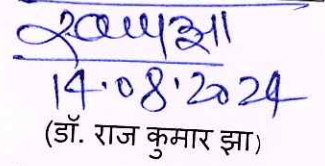 14.08.2024
(डॉ. राज कुमार झा)